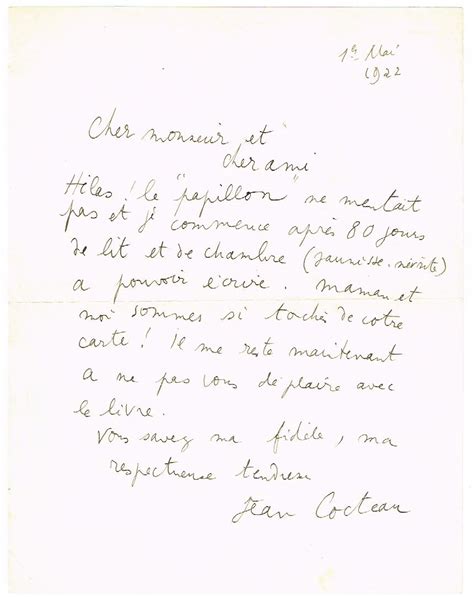 1er Mai
1922
Cher monsieur et
cher ami
Hélas ! le "papillon" ne mentait
pas et je commence après 80 jours
de lit et de chambre (jaunisse. névrite)
a pouvoir écrire. maman et
moi sommes si touchés de votre
carte ! Il me reste maintenant
a ne pas vous déplaire avec
le livre.
Vous savez ma fidèle, ma
respectueuse tendresse
Jean Cocteau